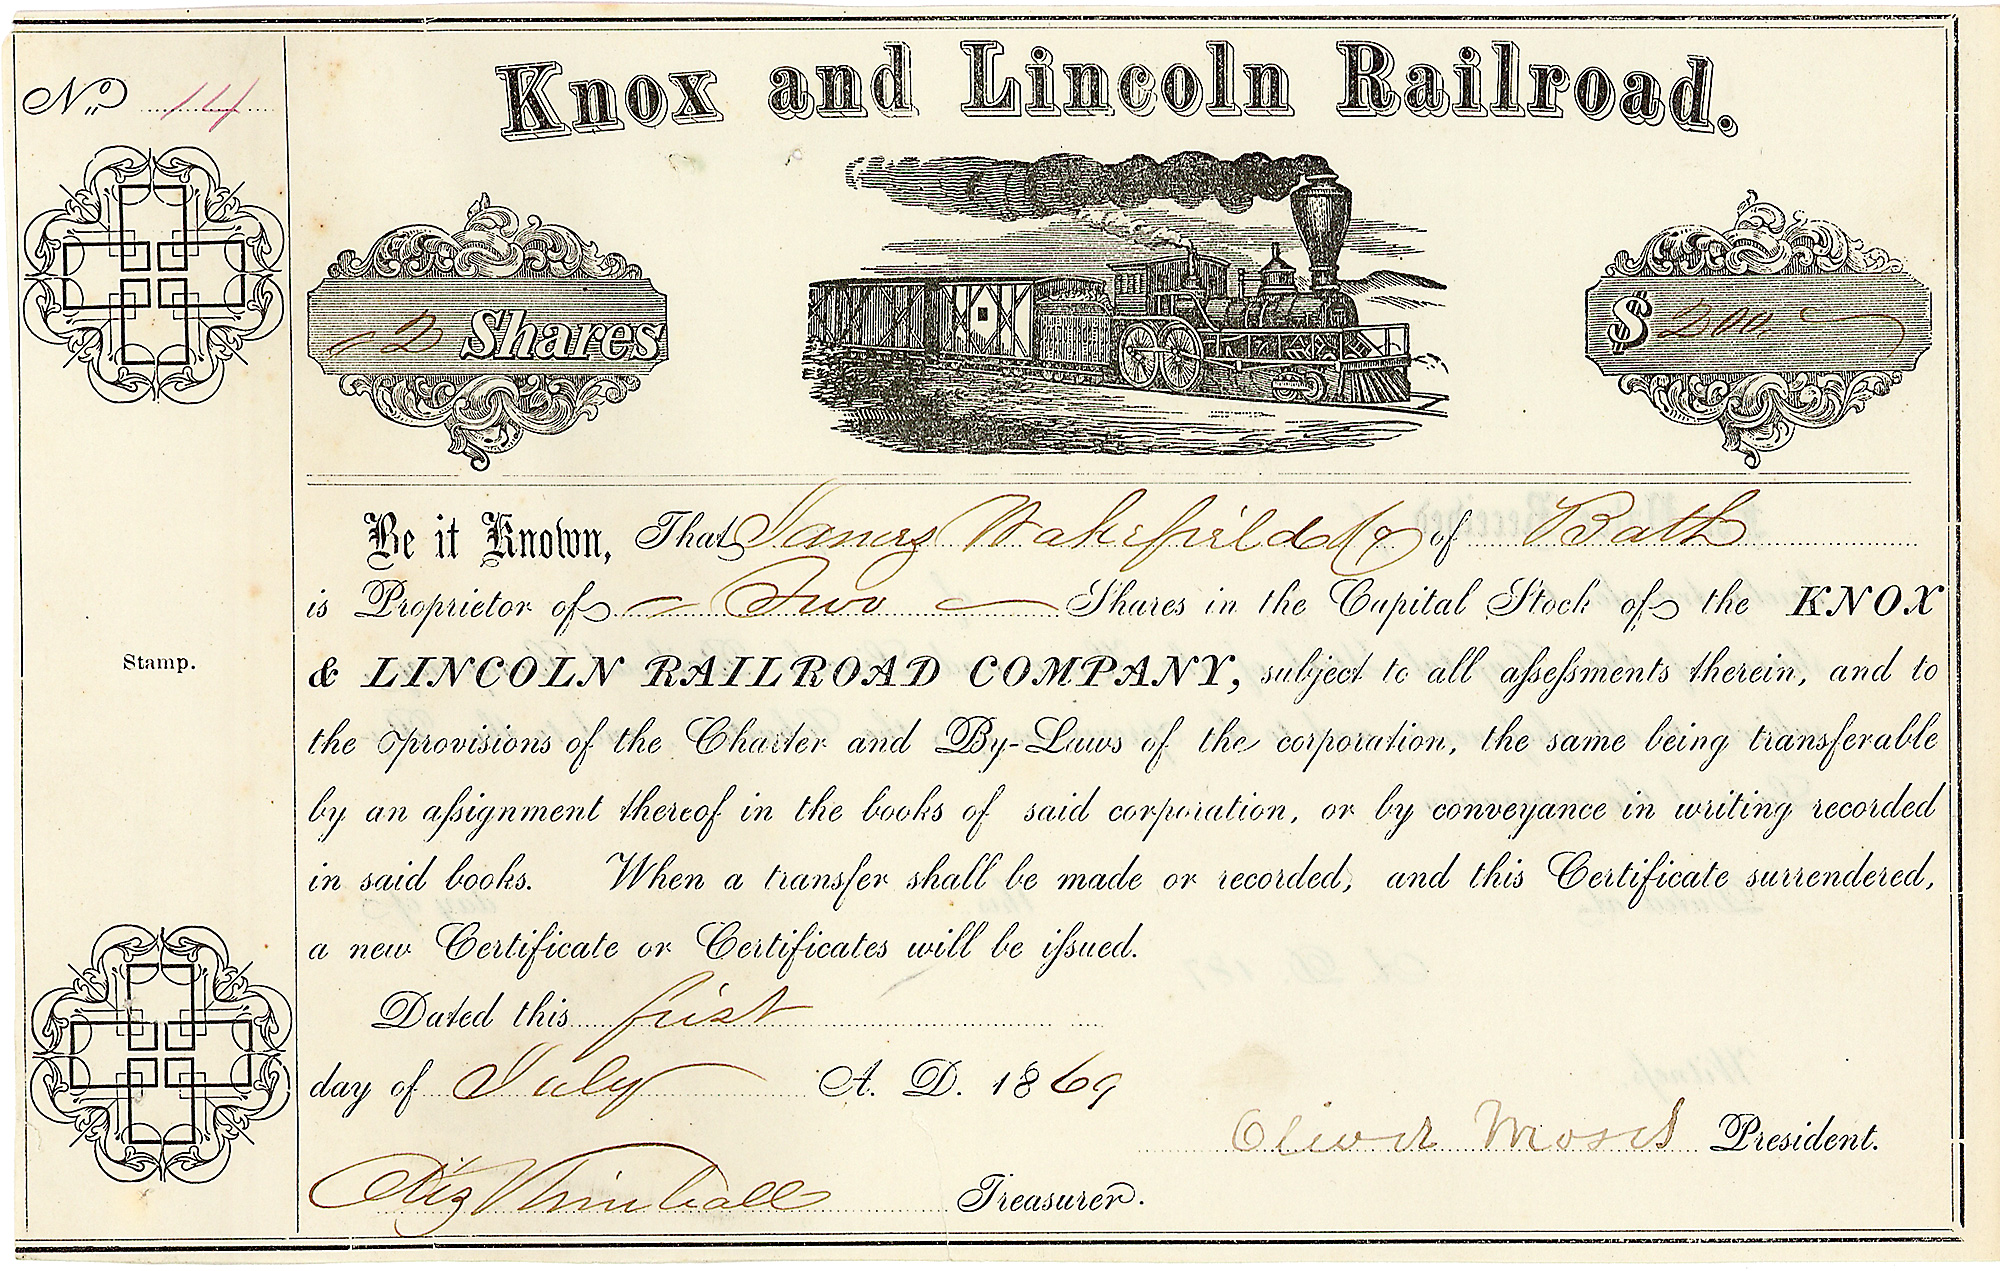 Knox and Lincoln Railroad.
No. 14
2 Shares
$ 200
Be it Known, That James Wakefield of Bath
is Proprietor of Two Shares in the Capital Stock of the KNOX
& LINCOLN RAILROAD COMPANY, subject to all assessments therein, and to
the provisions of the Charter and By-Laws of the corporation, the same being transferable
by an assignment thereof in the books of said corporation, or by conveyance in writing recorded
in said books. When a transfer shall be made or recorded, and this Certificate surrendered,
a new Certificate or Certificates will be issued.
Stamp.
Dated this first
day of July A. D. 1869
Oliver Moses President.
Kimball Treasurer.